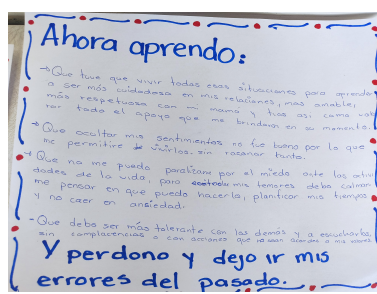 Ahora aprendo:
→Que tuve que vivir todas esas situaciones para aprender
a ser más cuidadosa en mis relaciones, mas amable,
más respetuosa con mi mamá y tias así como valo
rar todo el apoyo que me brindaron en su momento.
→Que ocultar mis sentimientos no fue bueno por lo que
me permitire vivirlos sin razonar tanto.
→Que no me puedo paralizar por el miedo ante las activi
dades de la vida, para mis temores debo calmar
me pensar en que puedo hacerlo, planticar mis tiempos
y no caer en ansiedad.
-Que debo ser más tolerante con los demás y a escucharlos,
sin complacencias o con acciones que no sean acordes a mis
Y perdono y dejo ir mis
errores del pasado.